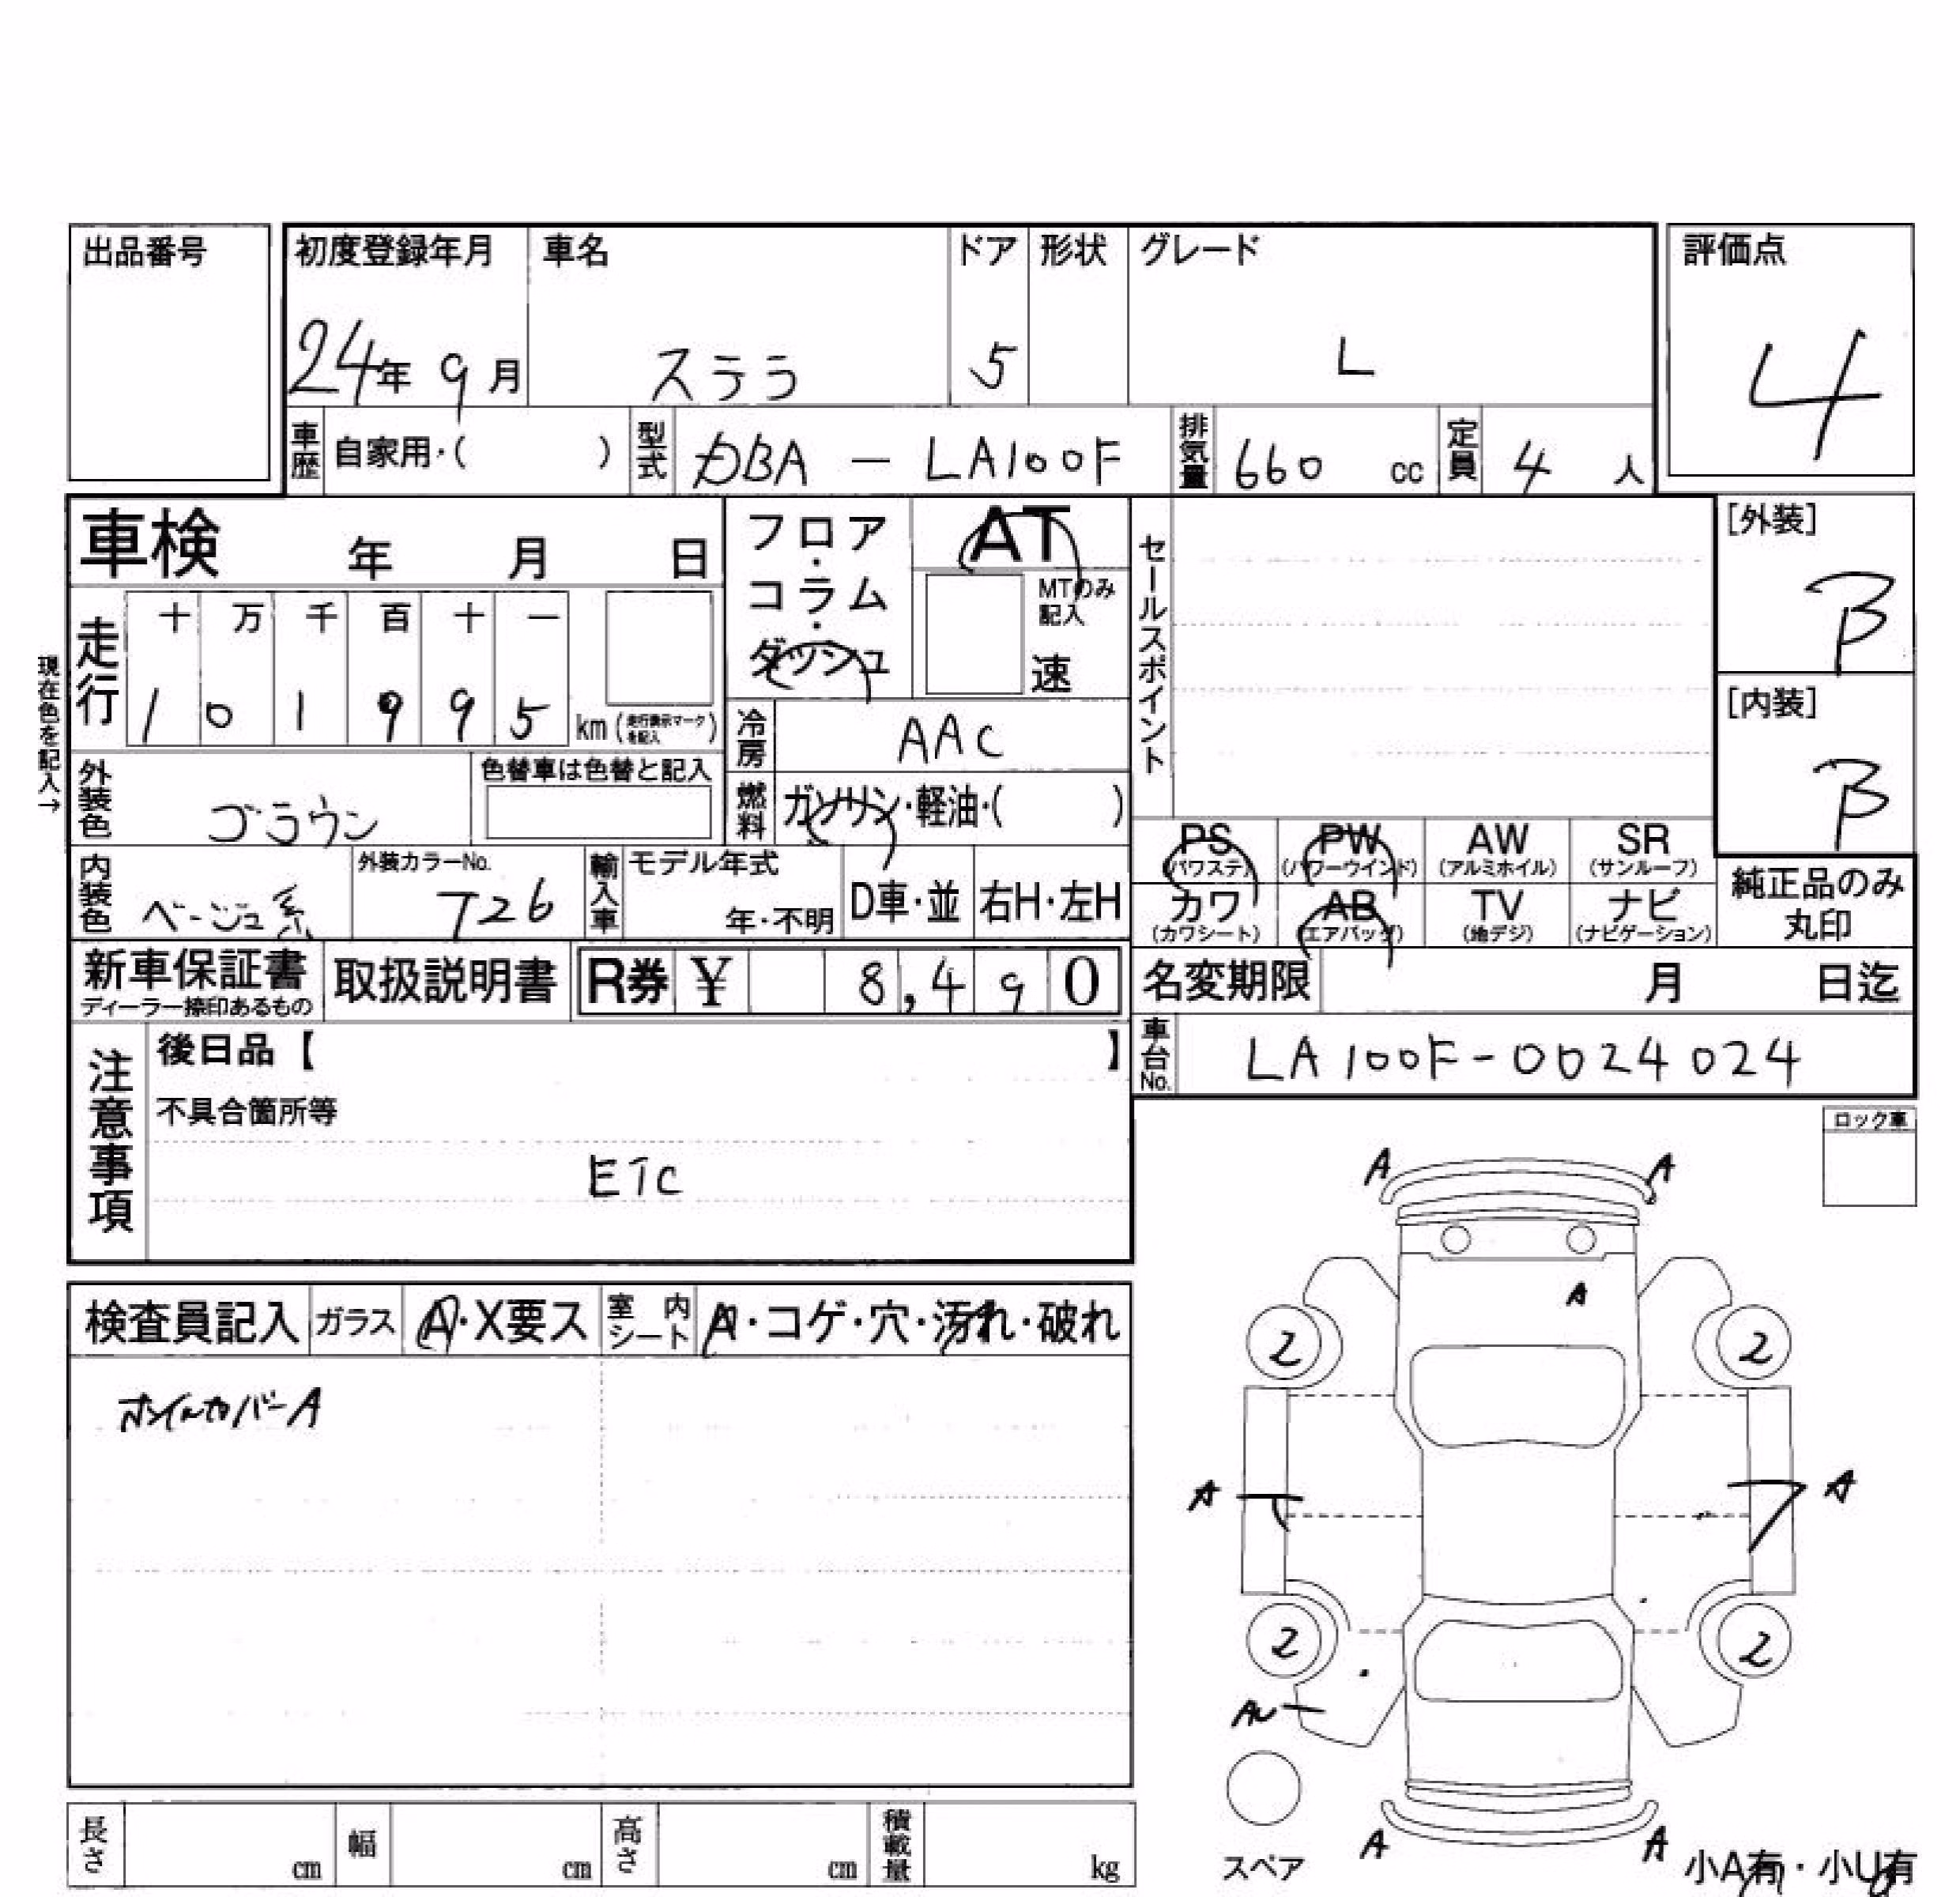 出品番号
初度登録年月 車名 ドア 形状 グレード 評価点
24年 9月 ステラ 5 L 4
車歴 自家用・( ) 型式 DBA - LA100F 排気量 660 cc 定員 4 人
車検 年 月 日 フロア・コラム・ダッシュ AT
MTのみ記入
速
セールスポイント
[外装]
B
走行 十 万 千 百 十 一
1 0 1 9 9 5 km (走行表示マークを記入)
現在色を記入→
[内装]
B
冷房 AAC
外装色 ブラウン 色替車は色替と記入
燃料 ガソリン・軽油・( )
PS (パワステ) PW (パワーウインド) AW (アルミホイル) SR (サンルーフ)
カワ (カワシート) AB (エアバッグ) TV (地デジ) ナビ (ナビゲーション)
純正品のみ
丸印
内装色 ベージュ系 外装カラーNo. T26 輸入車 モデル年式 年・不明 D車・並 右H・左H
新車保証書 ディーラー捺印あるもの 取扱説明書 R券 ¥ 8,490
名変期限 月 日迄
車台No. LA100F-0024024
注意事項
後日品【 】
不具合箇所等
ETC
ロック車
検査員記入 ガラス A・X要ス 室内シート A・コゲ・穴・汚れ・破れ
ホイルカバーA
A A
A
2 2
A A
2 2
A A
スペア
小A有・小U有
長さ cm 幅 cm 高さ cm 積載量 kg